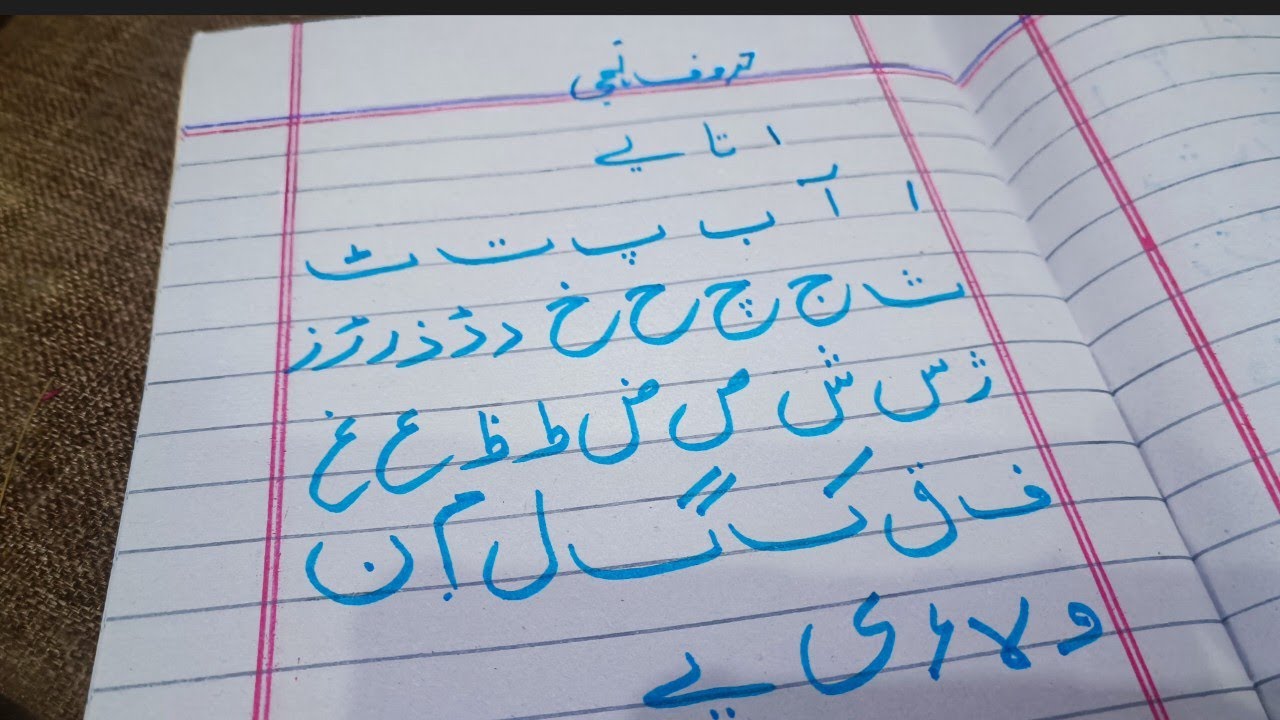 حروف تہجی
ا تا یے
ا آ ب پ ت ٹ
ث ج چ ح خ د ڈ ذ ر ڑ ز
ژ س ش ص ض ط ظ ع غ
ف ق ک گ ل م ن
و لا ء ی یے